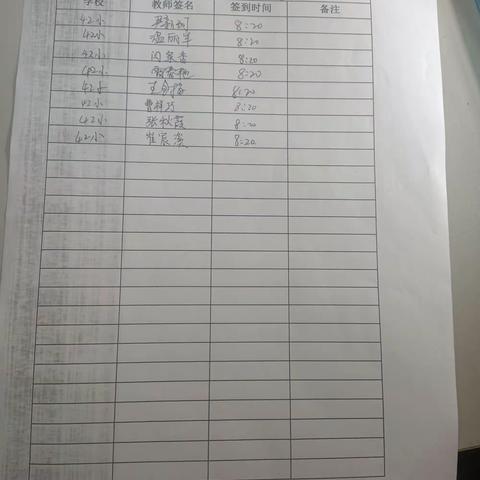 学校 教师签名 签到时间 备注
42小 8:20
42小 温丽军 8:20
42小 闪景香 8:20
42小 8:20
42小 8:20
42小 曹祥乃 8:20
42小 张秋霞 8:20
42小 崔宸溪 8:20